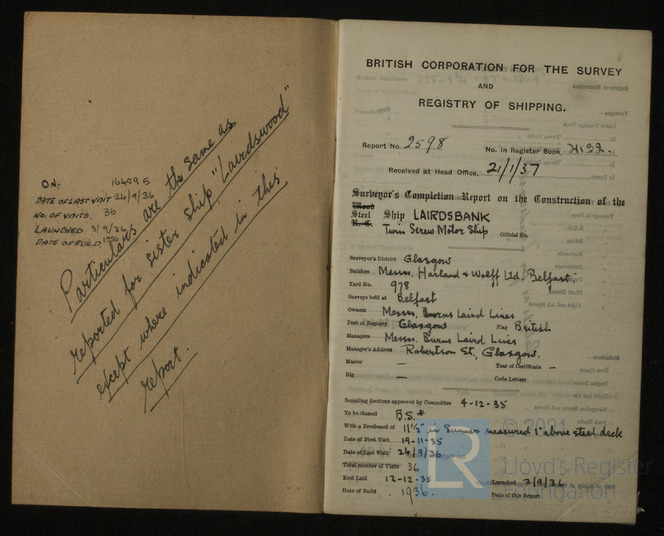 O.N. 164095
DATE OF LAST VISIT 24/9/36
NO. OF VISITS. 36
LAUNCHED 3/9/36
DATE OF BUILD 1936
Particulars are the same as
reported for sister ship "Lairdswood"
except where indicated in this
report.
BRITISH CORPORATION FOR THE SURVEY
AND
REGISTRY OF SHIPPING.
Report No. 2598 No. in Register Book, 21132.
Received at Head Office, 21/1/37
Surveyor's Completion Report on the Construction of the
Wood
Steel Ship LAIRDSBANK
Twin Screw Motor Ship Official No.
Surveyor's District Glasgow
Builders Messrs. Harland & Wolff Ltd. Belfast.
Yard No. 978
Surveys held at Belfast
Owners Messrs. Burns Laird Lines
Port of Registry Glasgow Flag British
Managers Messrs. Burns Laird Lines
Manager's Address Robertson St., Glasgow.
Master — Year of Certificate —
Rig — Code Letters
Scantling sections approved by Committee 4-12-35
To be classed B.S.*
With a Freeboard of 11½" in Summer measured 1" above steel deck
Date of First Visit 19-11-35
Date of Last Visit 24/9/36
Total number of Visits 36
Keel Laid 12-12-35 Launched 3/9/36
Date of Build 1936. Date of this Report
© 2021
LR Lloyd's Register
Foundation